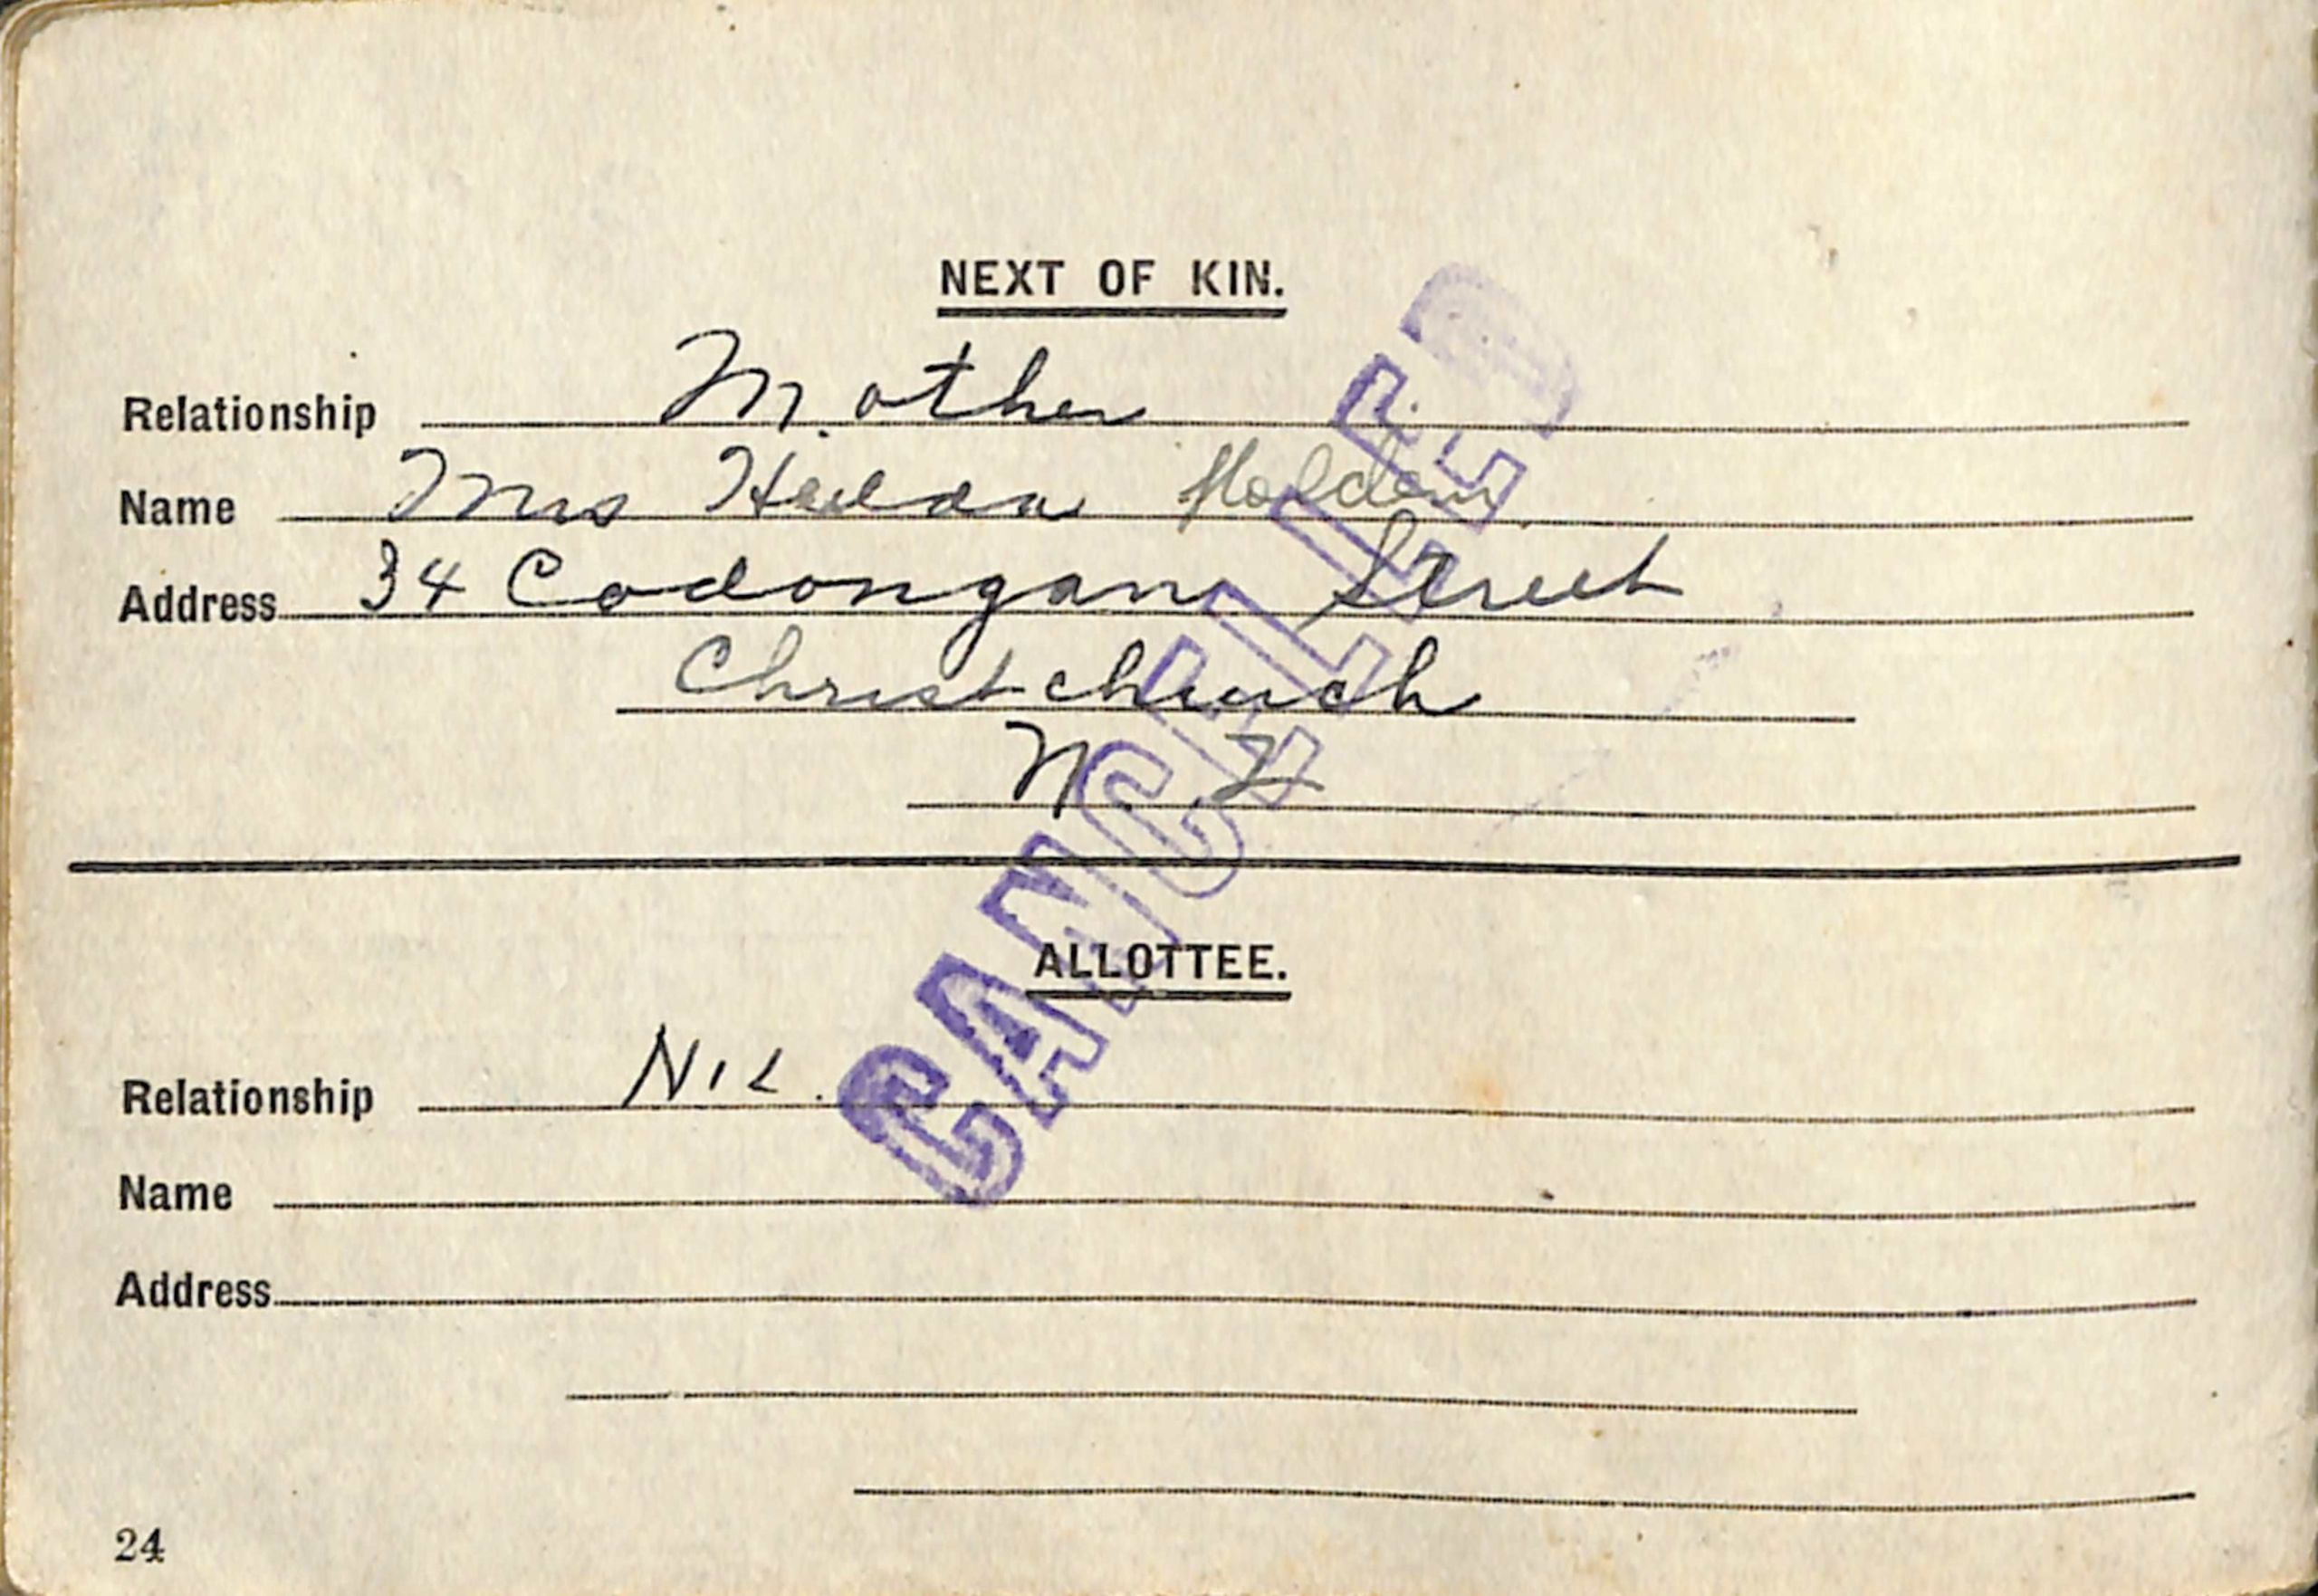 NEXT OF KIN.
Relationship Mother
Name Mrs Hilda Holdem
Address 34 Codongan Street
Christchurch
N Z
CANCELLED
ALLOTTEE.
Relationship NIL.
Name
Address
24